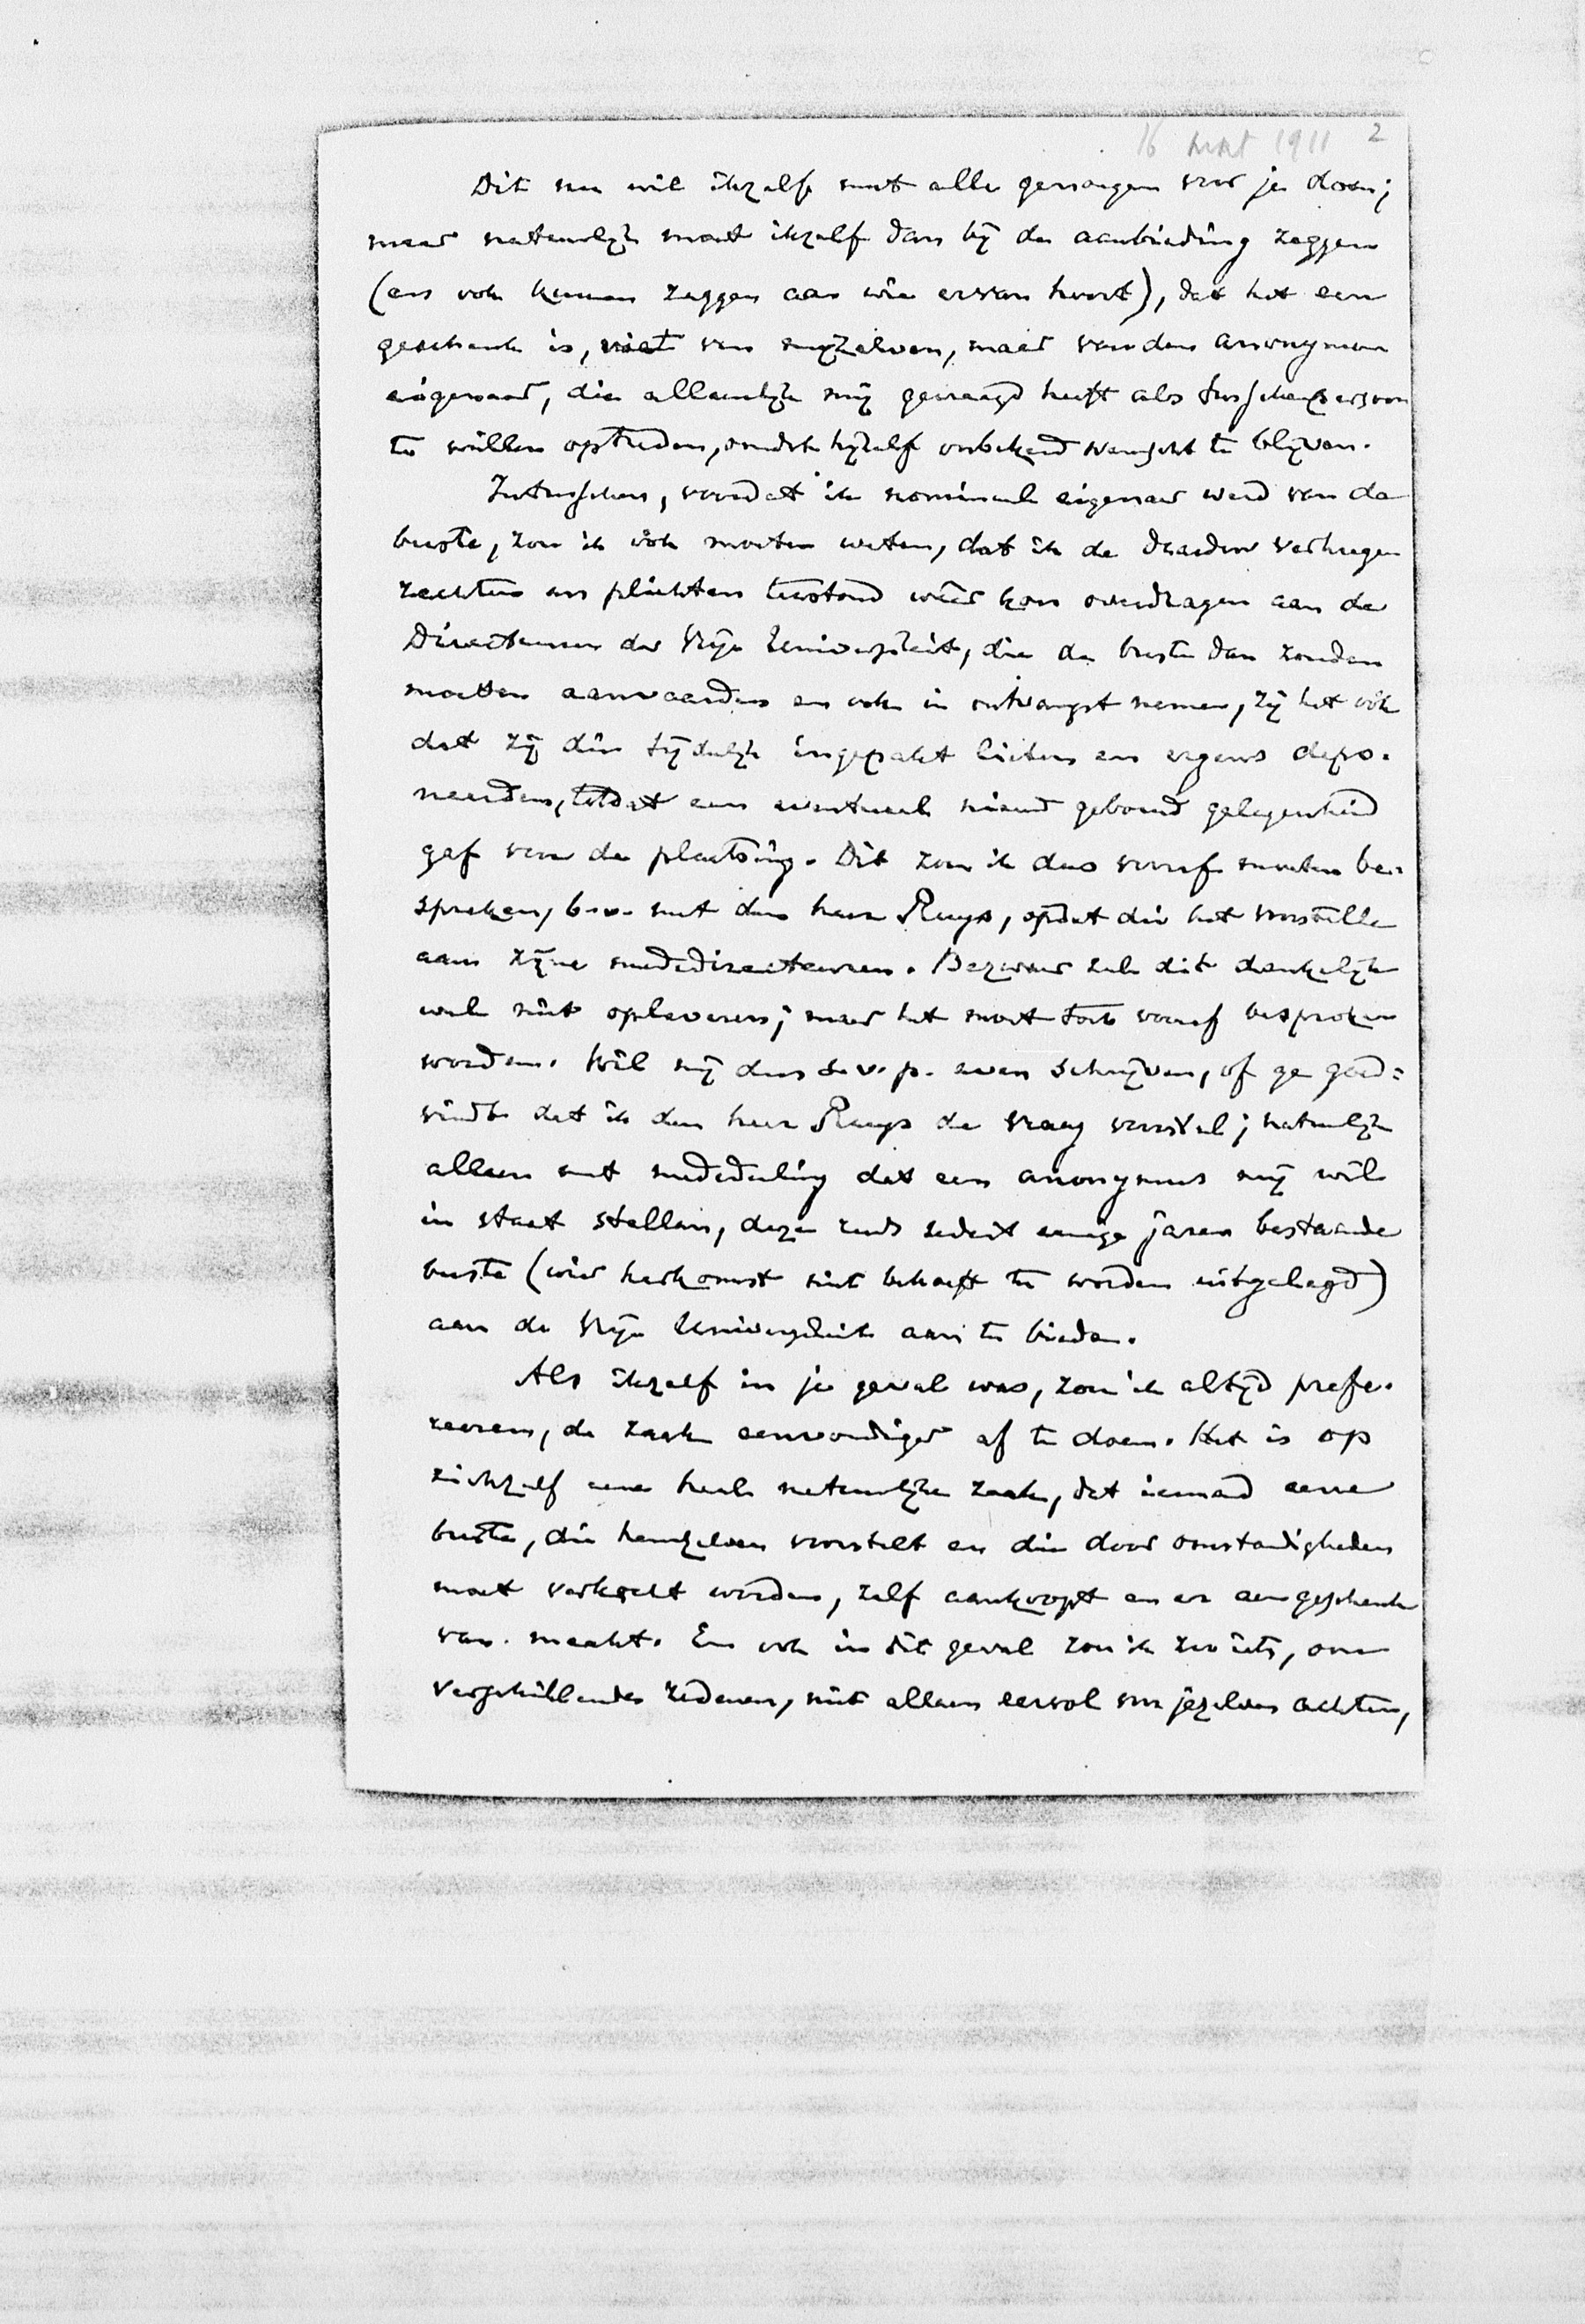 16 mrt 1911 2
Dit nu wil ikzelf met alle genoegen voor je doen;
maar natuurlijk moet ikzelf dan bij de aanbieding zeggen
(en ook kunnen zeggen aan wie ervan hoort), dat het een
geschenk is, niet van mijzelven, maar van den anonymen
eigenaar, die alleenlijk mij gevraagd heeft als tusschenpersoon
te willen optreden, omdat hijzelf onbekend wenscht te blijven.
Intusschen, voordat ik nominaal eigenaar werd van de
buste, zou ik óók moeten weten, dat ik de daardoor verkregen
rechten en plichten terstond wéér kon overdragen aan de
Directeuren der Vrije Universiteit, die de buste dan zouden
moeten aanvaarden en ook in ontvangst nemen, zij het ook
dat zij die tijdelijk ingepakt lieten en ergens depo-
neerden, totdat een eventueel nieuw gebouw gelegenheid
gaf voor de plaatsing. Dit zou ik dus vooraf moeten be-
spreken, b.v. met den heer Ruys, opdat die het voorstelle
aan zijne mededirecteuren. Bezwaar zal dit denkelijk
wel niet opleveren; maar het moet toch vooraf besproken
worden. Wil mij dus s.v.p. even schrijven, of ge goed-
vindt dat ik den heer Ruys de vraag voorstel; natuurlijk
alleen met mededeeling dat een anonymus mij wil
in staat stellen, deze reeds sedert eenige jaren bestaande
buste (wier herkomst niet behoeft te worden uitgelegd)
aan de Vrije Universiteit aan te bieden.
Als ikzelf in je geval was, zou ik altijd prefe-
reeren, de zaak eenvoudiger af te doen. Het is op
zichzelf eene heele natuurlijke zaak, dat iemand eene
buste, die hemzelven voorstelt en die door omstandigheden
moet verkocht worden, zelf aankoopt en er een geschenk
van maakt. En ook in dit geval zou ik zoo iets, om
verschillende redenen, niet alleen eervol voor jezelven achten,